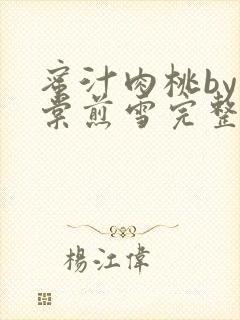 蜜汁肉桃by
棠煎雪完整
楊江偉